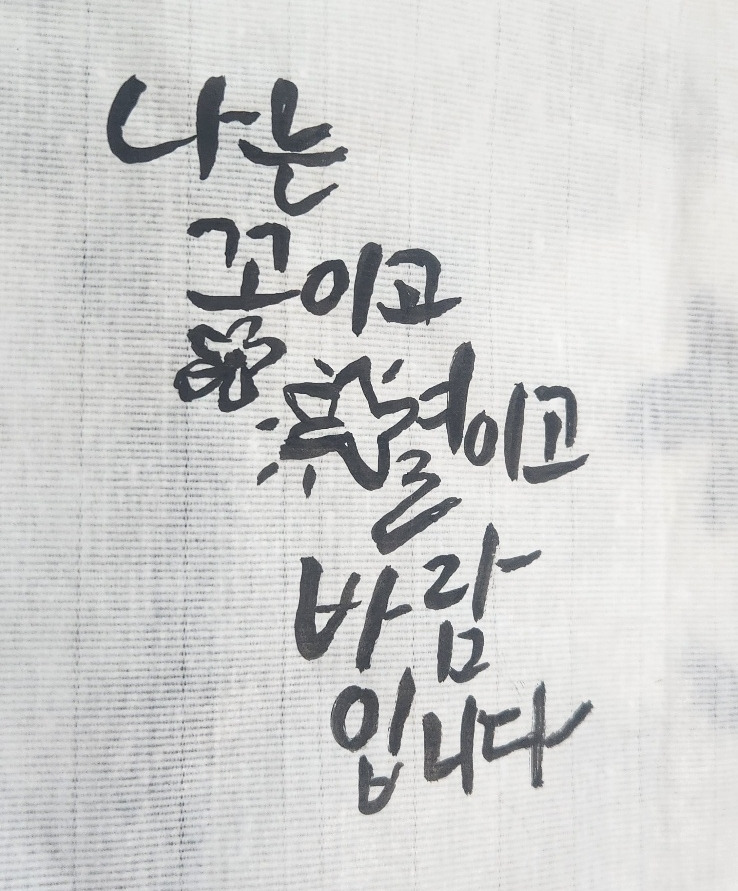 나는
꽃이고
별이고
바람
입니다